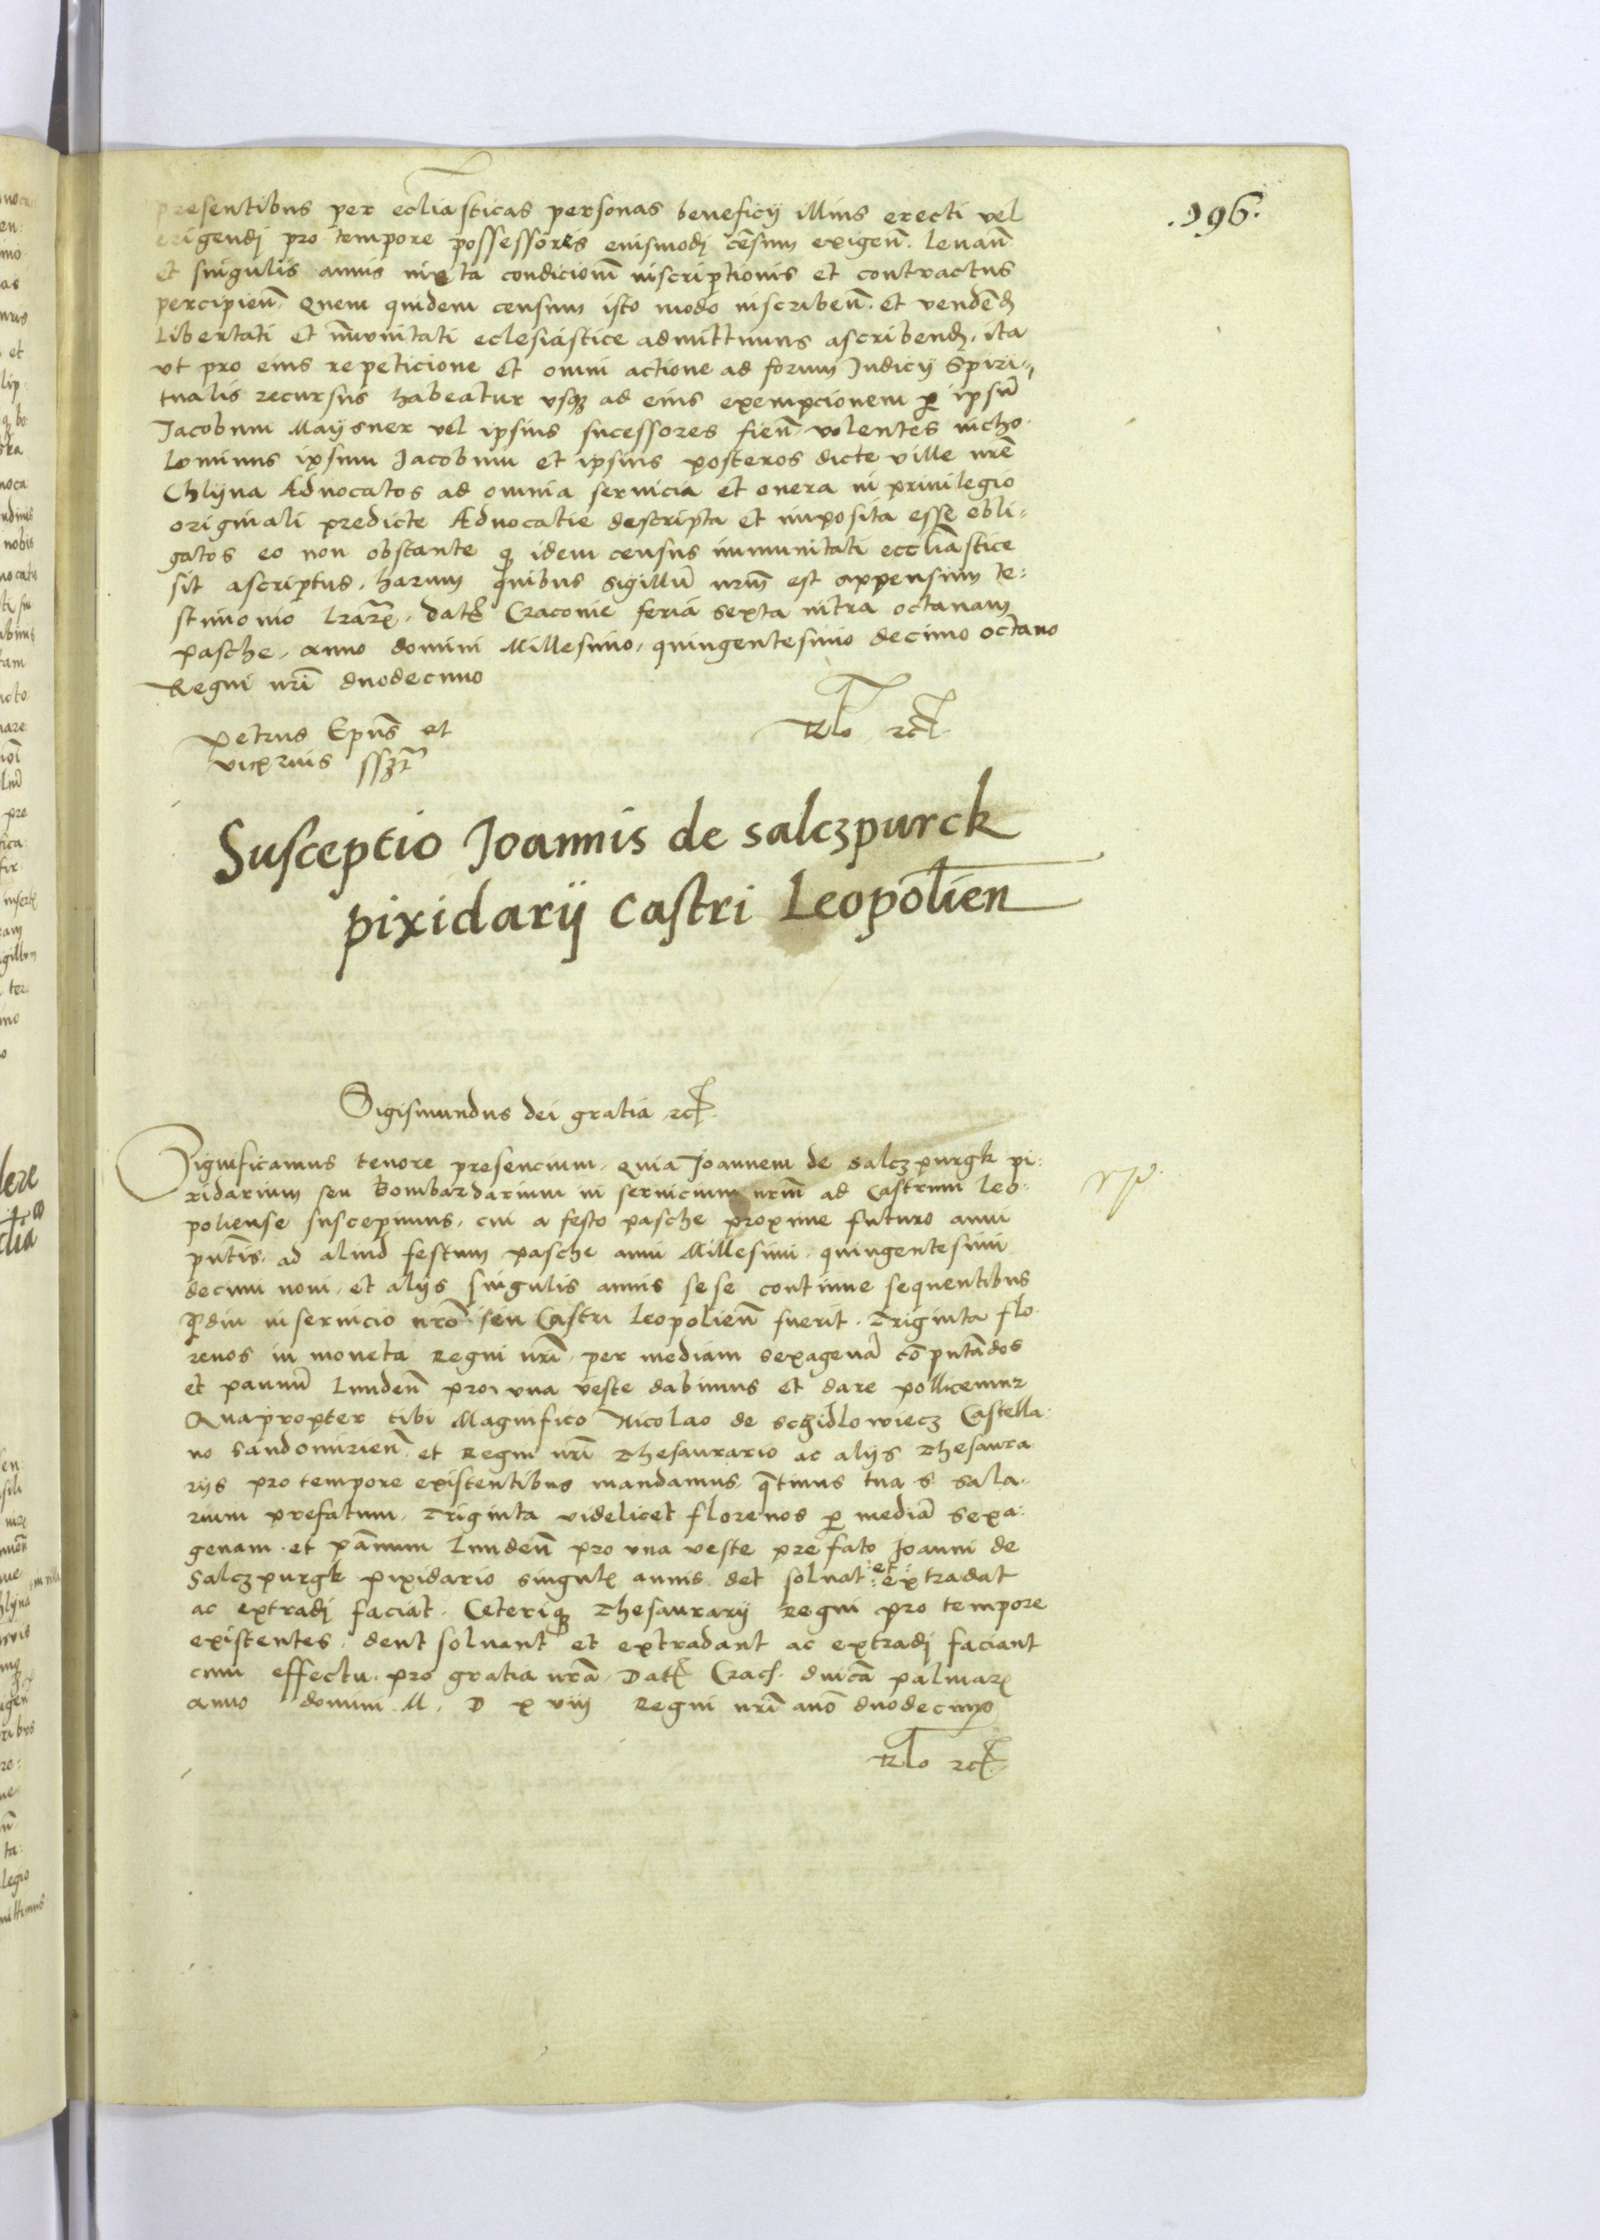 .196.
presentibus per eclīasticas personas beneficij illius erecti vel
erigendj pro tempore possessores euismodj cēsum exigeñ. leuañ
et singulis annis iuxta condicionē inscriptionis et contractus
percipieñ. Quem quidem censum isto modo inscribeñ. et vendēd
Libertati et īmvnitati eclesiastice admittimus ascribend, ita
vt pro eius repeticione et omni actione ad forum Judicij Spiri-
tualis recursus habeatur vsq; ad eius exempcionem p ipsū
Jacobum Maysner vel ipsius sucessores fieñ. volentes nicho-
lominus ipsum Jacobum et ipsius posteros dicte ville nrē
Chlyna Aduocatos ad omnia seruicia et onera in priuilegio
originali predicte Aduocatie descripta et imposita esse obli-
gatos eo non obstante q idem census immunitati ecclīastice
sit ascriptus. harum quibus sigillū nrm̄ est appensum te-
stimonio lrārz. dat Cracouie feria sexta intra octauam
pasche. anno domini Millesimo. quingentesimo decimo octauo
Regni nrī duodecimo
Petrus Epūs et
vicezrius sszt
Rlo rc
Susceptio Joannis de salczpurck
pixidarij castri Leopolien
Sigismundus dei gratia rc
Significamus tenore presencium. quia Joannem de Salczpurgk pi-
xidarium seu Bombardarium in seruicium nrm̄ ad castrum Leo-
poliense suscepimus. cui a festo pasche proxime futuro anni
pntis. ad aliud festum pasche anni Millesimi. quingentesimi
decimi noni. et alijs singulis annis sese continue sequentibus
qdiu in seruicio nrō seu Castri Leopolieñ fuerit. Triginta flo-
renos in moneta Regni nrī. per mediam sexagenā cōputādos
et pannū lundeñ pro vna veste dabimus et dare pollicemur
Quapropter tibi Magnifico Nicolao de Schidlowiecz Castella-
no Sandomirieñ. et Regni nrī Thesaurario ac alijs Thesaura-
rijs pro tempore existentibus mandamus, qtinus tua s. sala-
rium prefatum. Triginta videlicet florenos p mediā sexa-
genam. et pānum lundeñ pro vna veste prefato Joanni de
Salczpurgk pixidario singulis annis det soluat et extradat
ac extradj faciat. Ceteriq; Thesaurarij Regni pro tempore
existentes. dent soluant et extradant ac extradj faciant
cum effectu. pro gratia nrā. Dat Crac. dnicā palmarz
anno domini M. D xviij Regni nrī anō duodecimo
Rlo rc